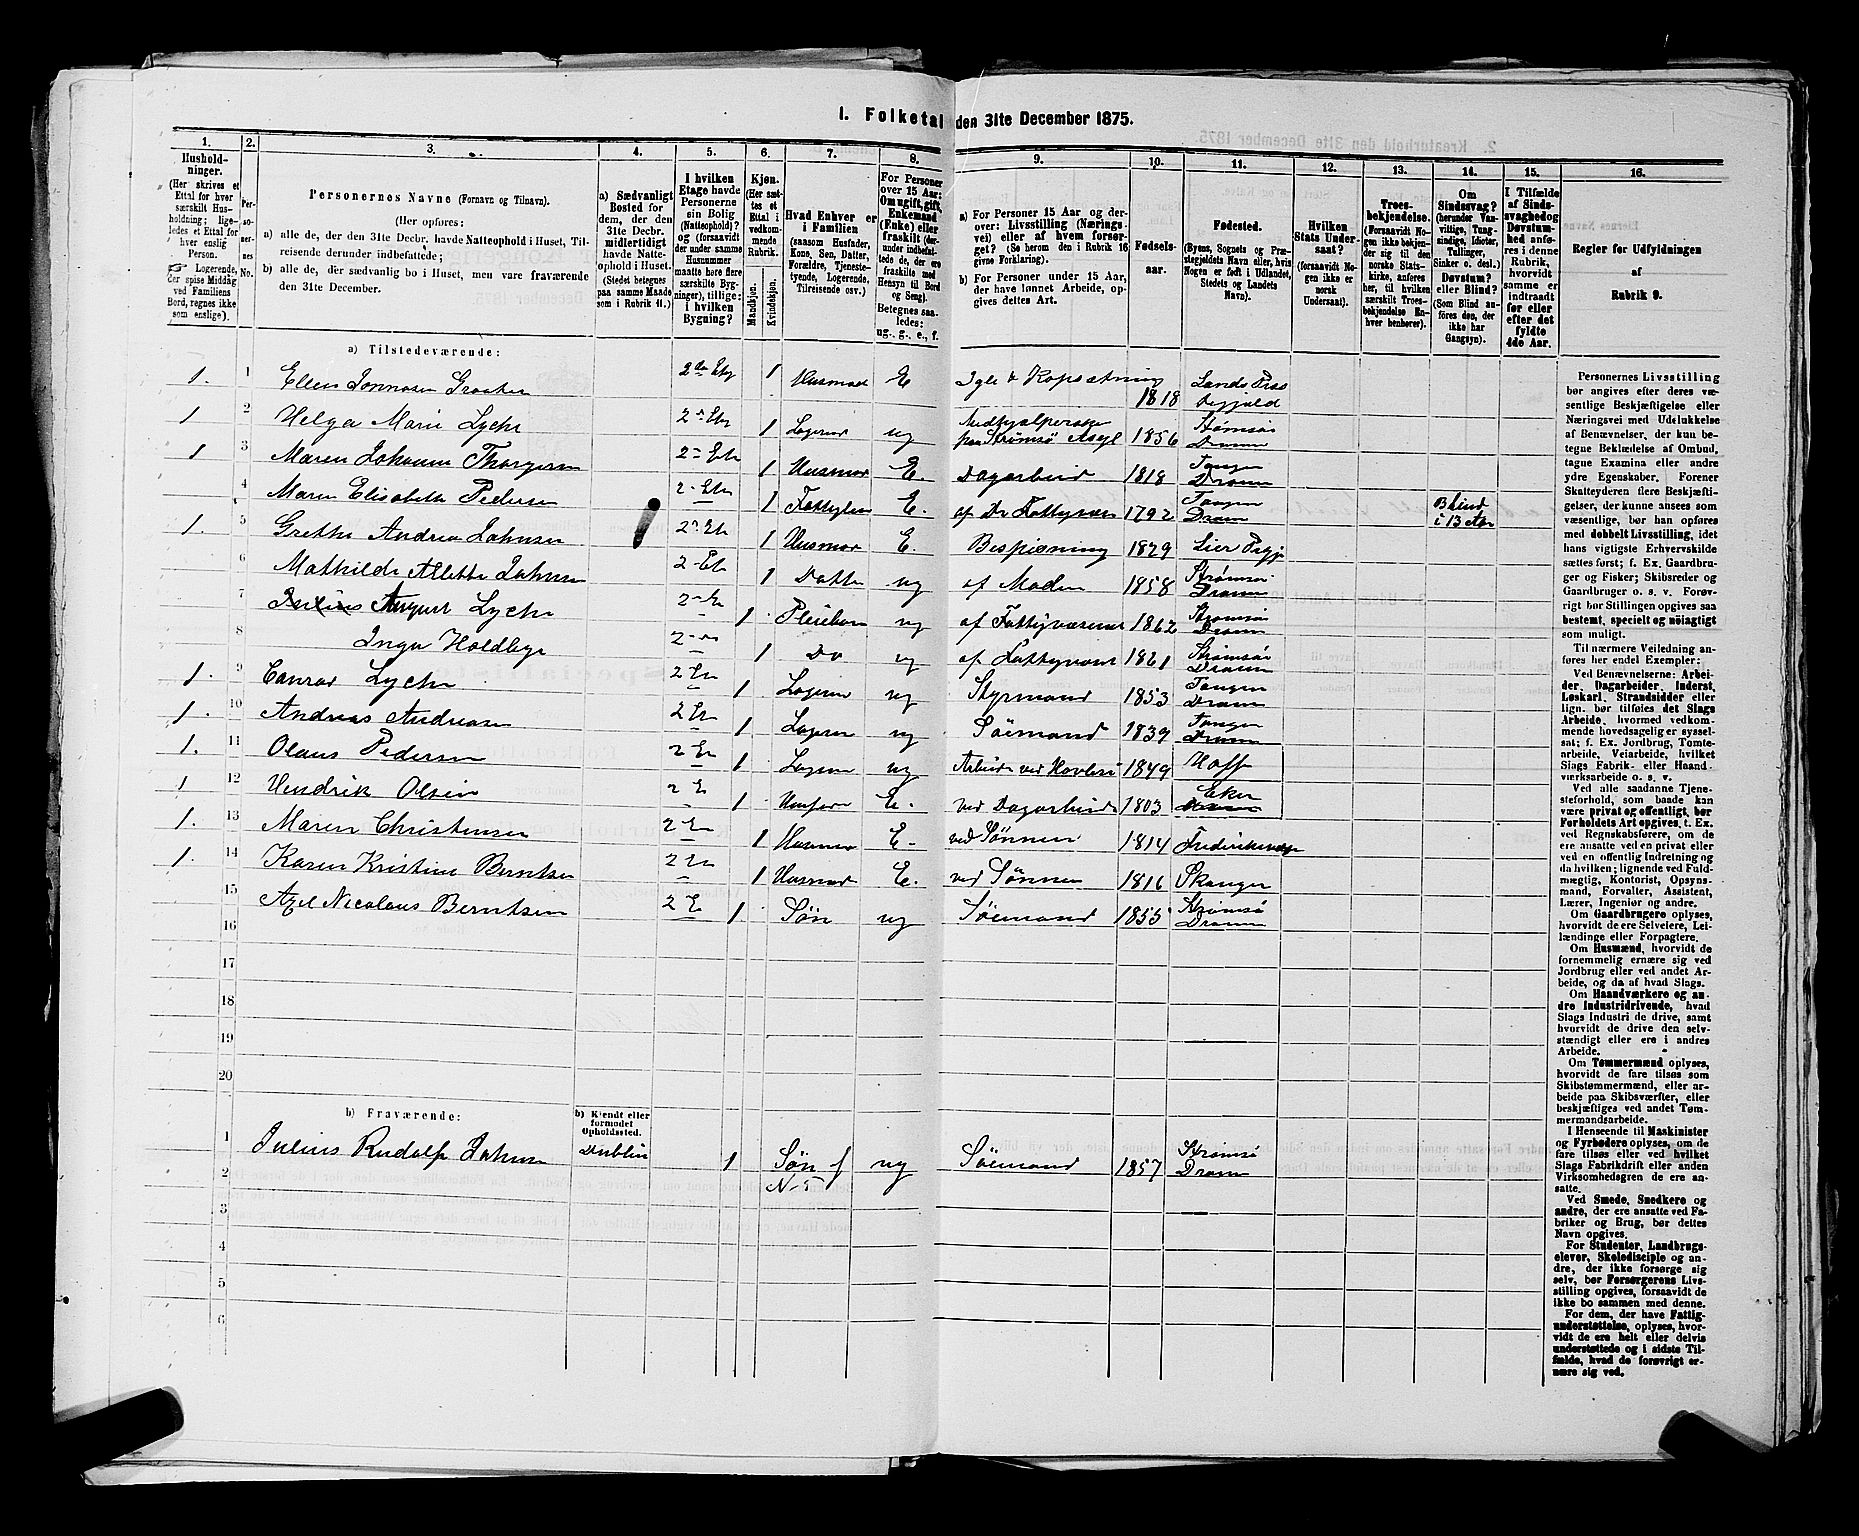 1. Folketal den 31te December 1875.
1. 2. 3. 4. 5. 6. 7. 8. 9. 10. 11. 12. 13. 14. 15. 16.
Hushold-
ninger.
(Her skrives et
Ettal for hver
særskilt Hus-
holdning; lige-
ledes et Ettal for
hver enslig
Person.
☞ Logerende,
der spise Middag
ved Familiens
Bord, regnes ikke
som enslige).
Per-
so-
ner-
nes
No.
Personernes Navne (Fornavn og Tilnavn).
(Her opføres:
a) alle de, der den 31te Decbr. havde Natteophold i Huset, Til-
reisende derunder indbefattede;
b) alle de, der sædvanlig bo i Huset, men vare fraværende
den 31te December.
a) Sædvanligt
Bosted for
dem, der den
31te Decbr.
midlertidigt
havde Natte-
ophold i Huset.
(Stedet betegnes
paa samme Maade
som i Rubrik 11.)
I hvilken
Etage havde
Personerne
sin Bolig
(Natteophold)?
og (forsaavidt
der under samme
Husnummer
maatte høre flere
særskilte Byg-
ninger), tillige:
i hvilken
Bygning?
Kjøn.
(Her sæt-
tes et
Ettal i
vedkom-
mende
Rubrik.
Mandkjøn.
Kvindekjøn.
Hvad Enhver er
i Familien
(saasom Husfader,
Kone, Søn, Datter,
Forældre, Tjeneste-
tyende, Logerende,
Tilreisende osv.)
For Personer
over 15 Aar:
Om ugift, gift,
Enkemand
(Enke) eller
fraskilt (der-
under indbefat-
tede de, der ere
fraskilte med
Hensyn til Bord
og Seng).
Betegnes saa-
ledes:
ug., g., e., f.
a) For Personer 15 Aar og der-
over: Livsstilling (Nærings-
vei) eller af hvem forsør-
get? (Se herom den i Rubrik 16
givne Forklaring).
b) For Personer under 15 Aar,
der have lønnet Arbeide, op-
gives dettes Art.
Fødsels-
aar.
Fødested.
(Byens, Sognets og Præ-
stegjeldets Navn eller, hvis
Nogen er født i Udlandet,
Stedets og Landets
Navn).
Hvilken
Stats Under-
saat?
(forsaavidt No-
gen ikke er
norsk
Undersaat).
Troes-
bekjendelse.
(Forsaavidt No-
gen ikke bekjen-
der sig til den
norske Stats-
kirke, anføres
her, til hvilken
særskilt Troes-
bekjendelse En-
hver henhører).
Om
Sindssvag?
(herunder Van-
vittige, Tung-
sindige, Idioter,
Tullinger,
Sinker o. desl.)
Døvstum?
eller Blind?
(Som Blind an-
føres den, der
ikke har
Gangsyn).
I Tilfælde
af Sinds-
svaghed og
Døvstum-
hed anfø-
res i denne
Rubrik,
hvorvidt
samme er
indtraadt
før eller
efter det
fyldte
4de Aar.
Regler for Udfyldningen
af
Rubrik 9.
a) Tilstedeværende:
1. 1 Ellen 2den Etg 1 Husmor E 1818
1 2 Helga Marie Lyche 2n Etg 1 Logerend ug paa Strømsø Asyl 1856 Strømsø Dramm
1 3 Maren Johanne Thorgersn 2n Etg 1 Husmor E. Dagarbeid 1818 Tangen Dramm
4 Maren Elisabeth Pedersen 2 Etg 1 E. 1792 Tangen Dramm Blind i 13 Aar
1. 5 Grethe Andrea Johnsen 2n Et 1 Husmor E. Bespisning 1829 Lier
6 Mathilde Alette Johnsen 2 Et 1 Datter ug af Moderen 1858 Strømsø Dramm
7 Julius August Lyche 2n Et 1 Pleiebarn ug af Fattigvæsenet 1862 Strømsø Dramm
8 Inga Holdbye 2 1 Do ug af Fattigvæsenet 1861 Strømsø Dramm
1. 9 Conrad Lyche 2 Et 1 Logerend ug Styrmand 1853 Tangen Dramm
1. 10 Andreas Andreasen 2 Et 1 Logeren ug Søemand 1839 Tangen Dramm
1. 11 Olaus Pedersen 2 Et 1 Logeren ug 1849 Hoff
1 12 Hendrik Olsen 2 E 1 Husfar E. ved Dagarbeide 1803 Eker
1. 13 Maren Christensen 2 Et 1 Husmor E. ved Sønnen 1814
1. 14 Karen Kristine Berntsen 2 Et 1 Husmor E. ved Sønnen 1816 Skanger
15 Axel Nicolaus Berntsen 2 E 1. Søn ug Søemand 1855 Strømsø Dramm
16
17
18
19
20
b) Fraværende: b) Kjendt eller
formodet
Opholdssted.
1 Julius Rudolf Johnsen Dublin 1 Søn f N 5 ug Søemand 1857 Strømsø Dramm
2
3
4
5
6
Personernes Livsstilling
bør angives efter deres væ-
sentlige Beskjæftigelse eller
Næringsvei med Udelukkelse
af Benævnelser, der kun be-
tegne Beklædelse af Ombud,
tagne Examina eller andre
ydre Egenskaber. Forener
Skatteyderen flere Beskjæfti-
gelser, der kunne ansees som
væsentlige, bør han opføres
med dobbelt Livsstilling, idet
hans vigtigste Erhvervskilde
sættes først; f. Ex. Gaardbru-
ger og Fisker; Skibsreder og
Gaardbruger o. s. v. Forøv-
rigt bør Stillingen opgives saa
bestemt, specielt og nøiagtigt
som muligt.
Til nærmere Veiledning an-
føres her endel Exempler:
Ved Benævnelserne: Arbei-
der, Dagarbeider, Inderst,
Løskarl, Strandsidder eller
lign. bør tilføies det Slags
Arbeide, hvormed vedkom-
mende hovedsagelig er syssel-
sat; f. Ex. Jordbrug, Tomte-
arbeide, Veiarbeide, hvilket
Slags Fabrik- eller Haand-
værksarbeide o. s. v.
Ved alle saadanne Tjene-
steforhold, som baade kan
være privat og offentligt, bør
Forholdets Art opgives, f. Ex.
ved Regnskabsførere, om de
ere ansatte ved en privat eller
ved en offentlig Indretning og
da hvilken; lignende ved Fuld-
mægtig, Kontorist, Opsyns-
mand, Forvalter, Assistent,
Lærer, Ingeniør og andre.
Om Gaardbrugere oplyses,
hvorvidt de ere Selveiere, Lei-
lændinge eller Forpagtere.
Om Husmænd, hvorvidt de
fornemmelig ernære sig ved
Jordbrug eller ved andet Ar-
beide, og da af hvad Slags.
Om Haandværkere og an-
dre Industridrivende, hvad
Slags Industri de drive, samt
hvorvidt de drive den selv-
stændigt eller ere i andres
Arbeide.
Om Tømmermænd oplyses,
hvorvidt de fare tilsøs som
Skibstømmermænd, eller ar-
beide paa Skibsværfter, eller
beskjæftiges ved andet Tøm-
mermandsarbeide.
I Henseende til Maskinister
og Fyrbødere oplyses, om de
fare tilsøs eller ved hvilket
Slags Fabrikdrift eller anden
Virksomhedsgren de ere an-
satte.
Ved Smede, Snedkere og
andre, der ere ansatte ved Fa-
briker og Brug, bør dettes
Navn opgives.
For Studenter, Landbrugs-
elever, Skoledisciple og an-
dre, der ikke forsørge sig
selv, bør Forsørgerens Livs-
stilling opgives, forsaavidt de
ikke bo sammen med denne.
For dem, der have Fattig-
understøttelse, oplyses, hvor-
vidt de ere helt eller delvis
understøttede og i sidste Til-
fælde, hvad de forøvrigt er-
nære sig ved.